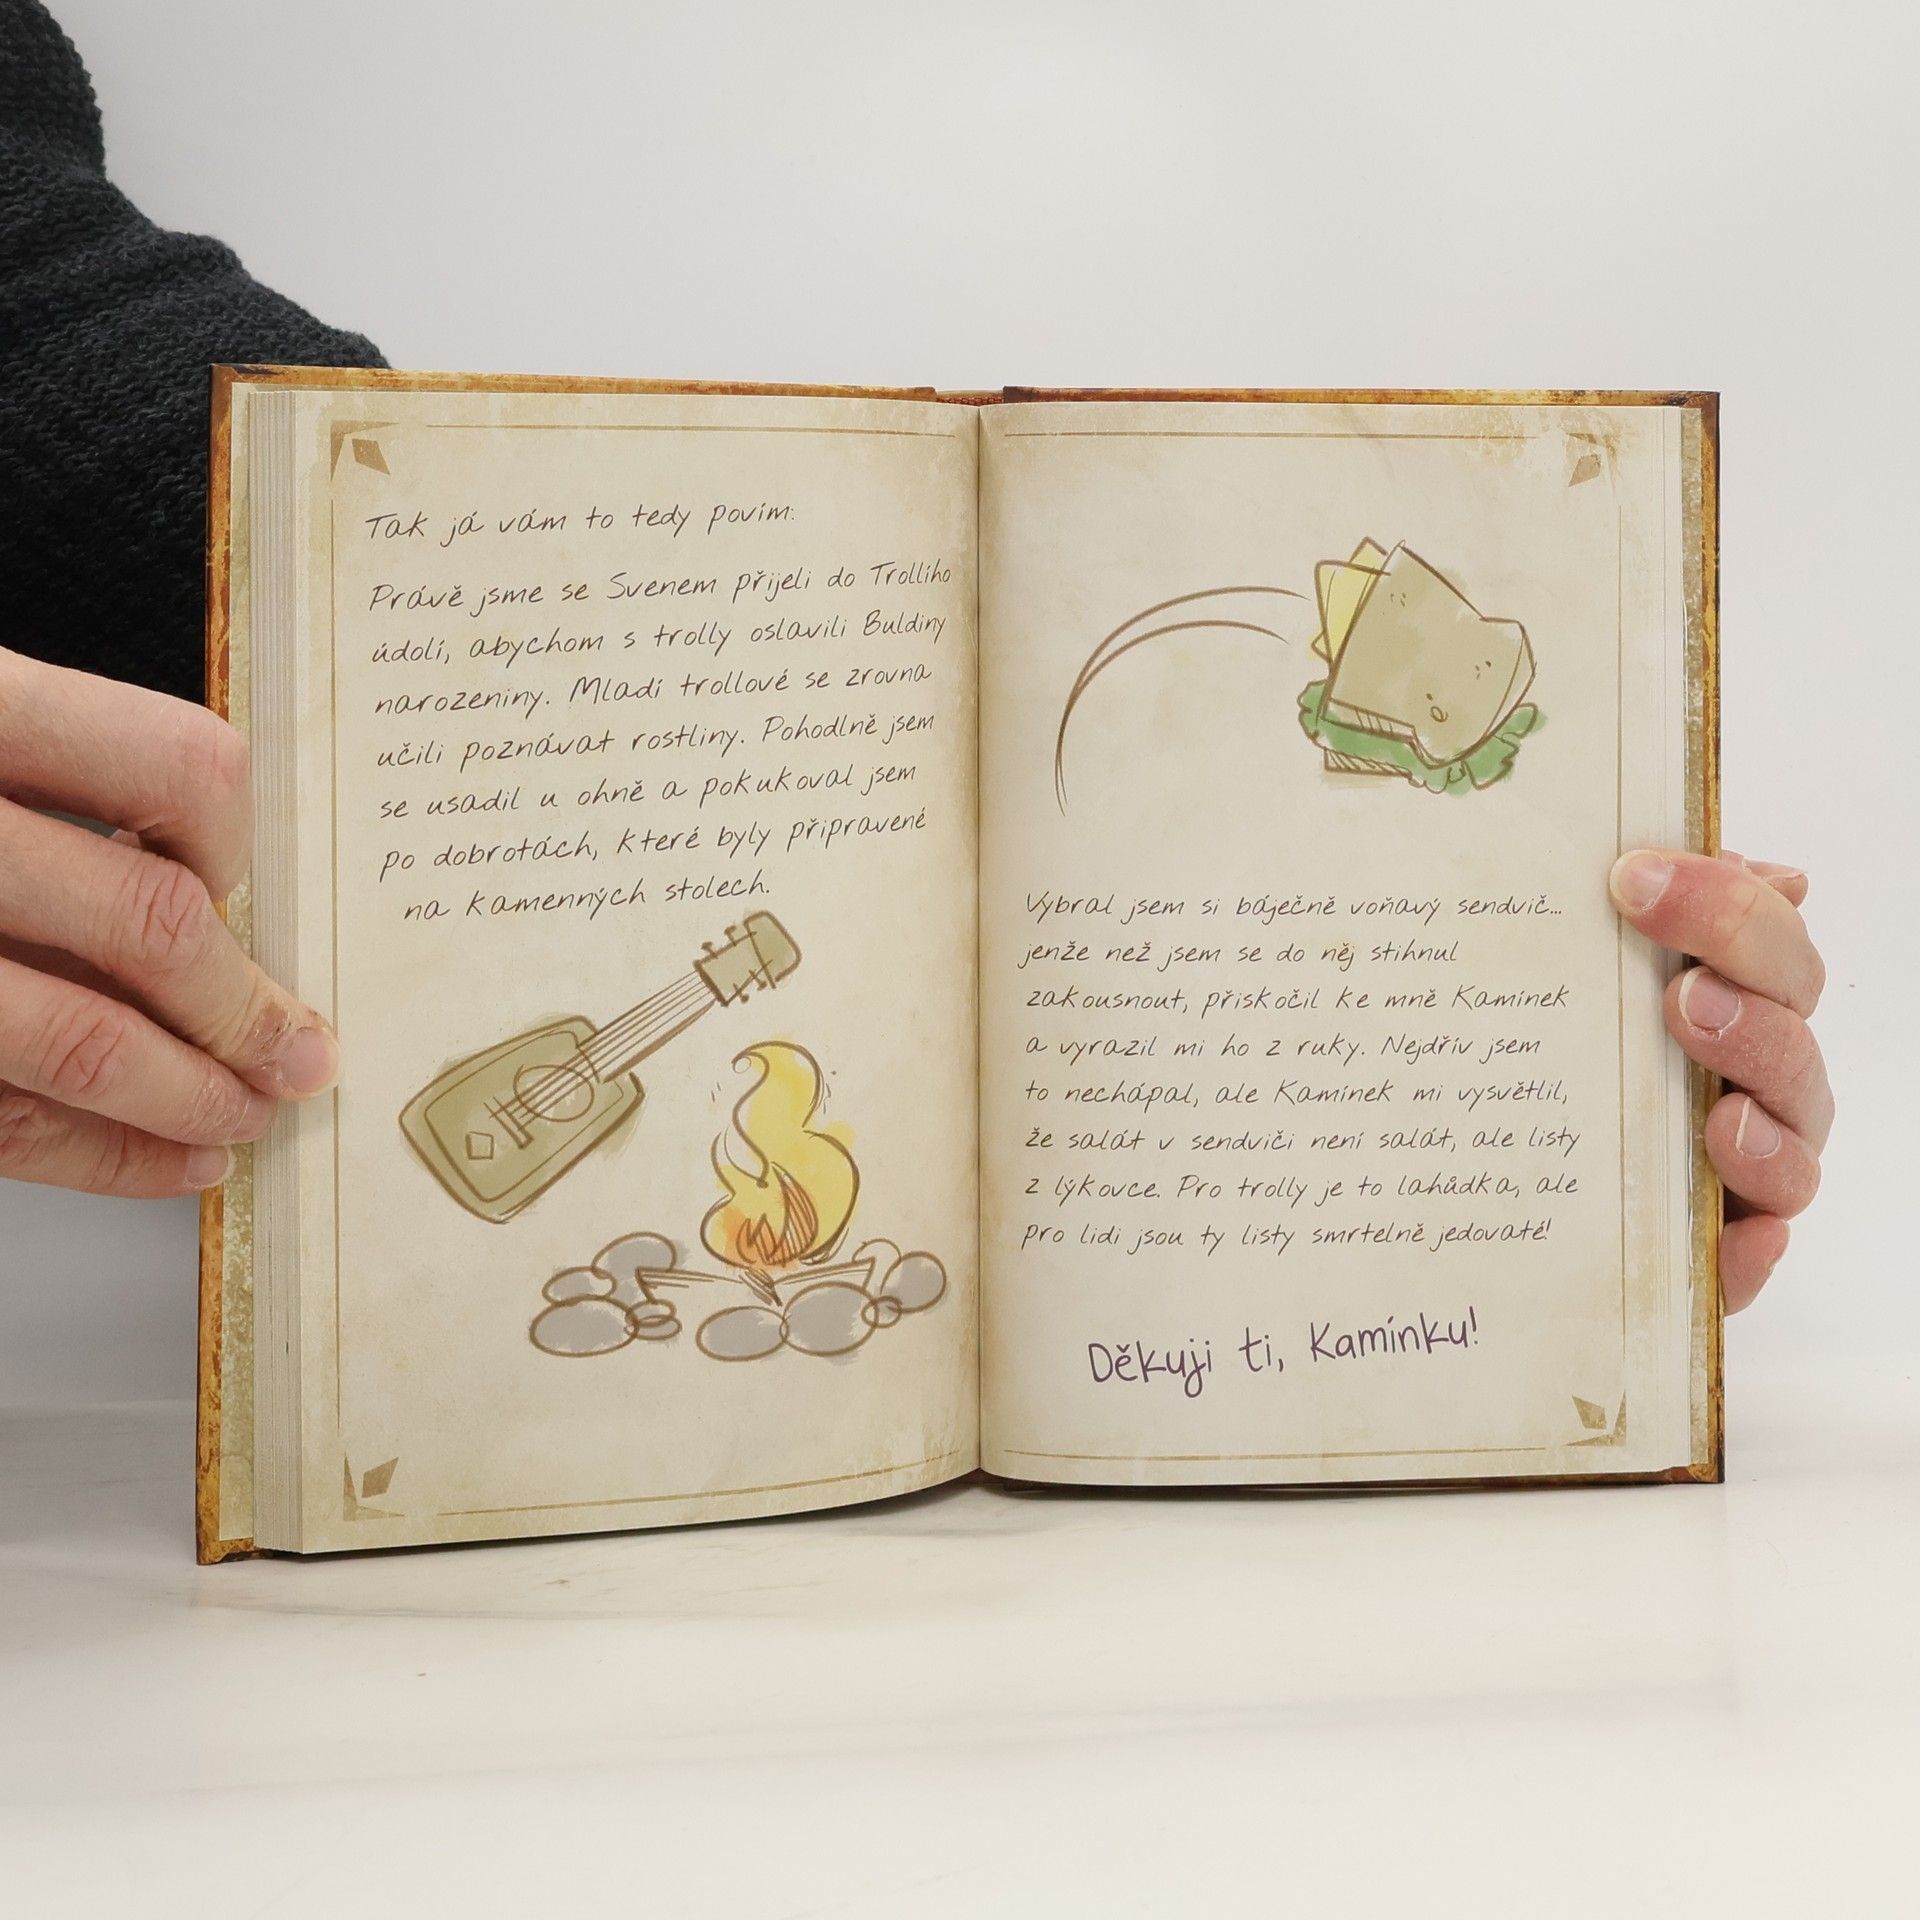 Tak já vám to tedy povím:
Právě jsme se Svenem přijeli do Trollího
údolí, abychom s trolly oslavili Buldiny
narozeniny. Mladí trollové se zrovna
učili poznávat rostliny. Pohodlně jsem
se usadil u ohně a pokukoval jsem
po dobrotách, které byly připravené
na kamenných stolech.
Vybral jsem si báječně voňavý sendvič...
jenže než jsem se do něj stihnul
zakousnout, přiskočil ke mně Kamínek
a vyrazil mi ho z ruky. Nejdřív jsem
to nechápal, ale Kamínek mi vysvětlil,
že salát v sendviči není salát, ale listy
z lýkovce. Pro trolly je to lahůdka, ale
pro lidi jsou ty listy smrtelně jedovaté!
Děkuji ti, Kamínku!